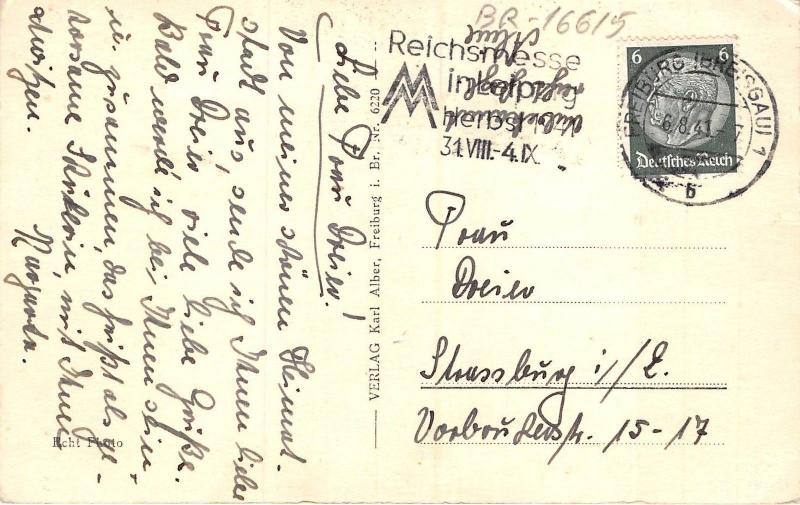 BR-16615
Reichsmesse
in Leipzig
Herbst
31.VIII.-4.IX.
FREIBURG (BREISGAU) 1
6.8.41
b
6 6
Deutsches Reich
Liebe Frau Dreier!
Von meiner schönen Heimat-
stadt aus, sende ich Ihnen liebe
Frau Dreier viele liebe Grüße.
Bald werde ich bei Ihnen sein
u. zusammen, das heißt als ge-
horsame Schülerin, mit Ihnen
Margarete.
VERLAG Karl Alber, Freiburg i. Br. Nr. 6220
Echt Photo
Frau
Dreier
Strassburg i/E.
Vorbruckerstr. 15-17